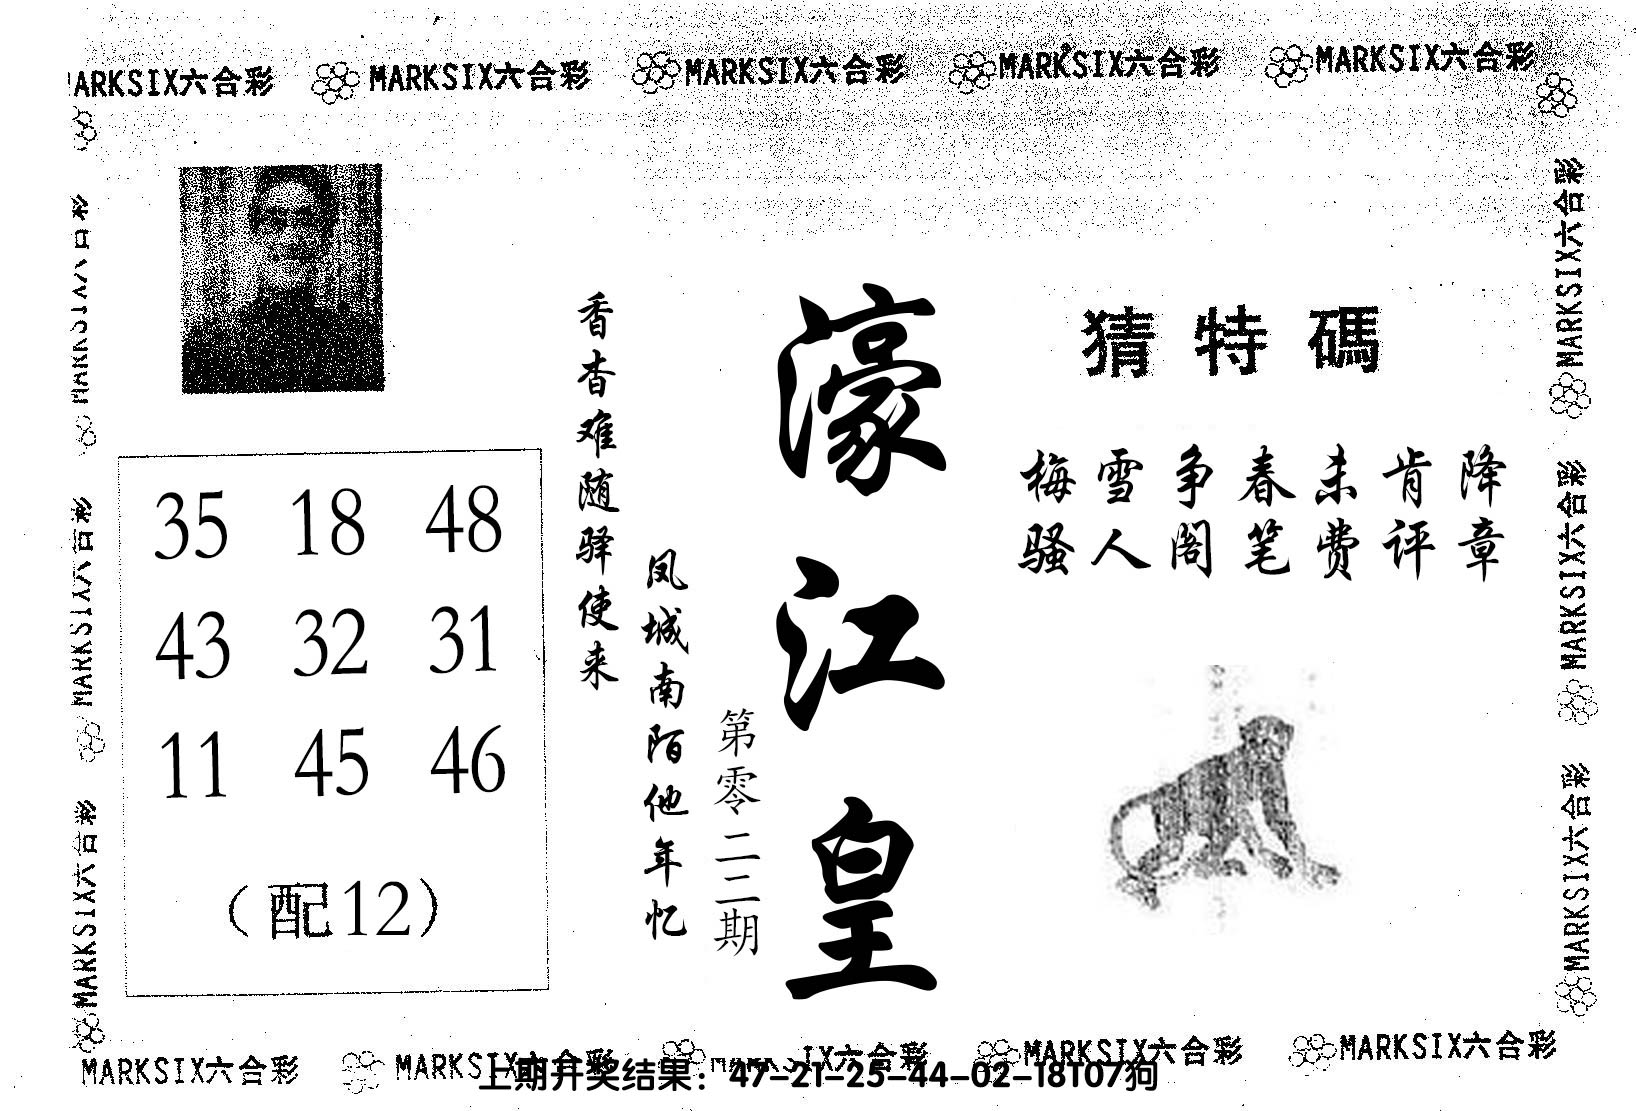 MARKSIX六合彩 MARKSIX六合彩 MARKSIX六合彩 MARKSIX六合彩 MARKSIX六合彩
猜特碼
梅雪争春未肯降
骚人阁笔费评章
濠江皇
第零二二期
凤城南陌他年忆
香杳难随驿使来
35 18 48
43 32 31
11 45 46
（配12）
MARKSIX六合彩
MARKSIX六合彩
MARKSIX六合彩
MARKSIX六合彩
MARKSIX六合彩
MARKSIX六合彩
MARKSIX六合彩 MARKSIX六合彩 MARKSIX六合彩 MARKSIX六合彩
上期开奖结果：47-21-25-44-02-18T07狗